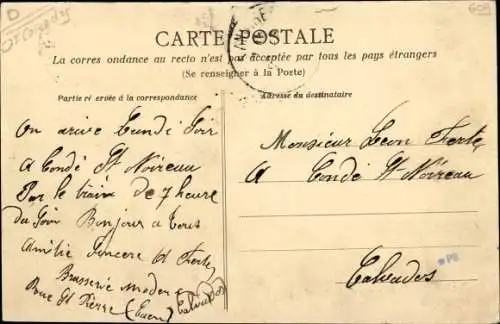 D
CARTE POSTALE
La corres ondance au recto n'est pas acceptée par tous les pays étrangers
(Se renseigner à la Poste)
Partie réservée à la correspondance
Adresse du destinataire
On arive Lundi Soir
A Condé St Noireau
Par le train de 7 heure
du Soir Bonjour a tous
Amitié Sincere A Ferte
Brasserie moderne
Rue St Pierre (Caen) Calvados
Monsieur Leon Ferte
A Condé St Noireau
Calvados